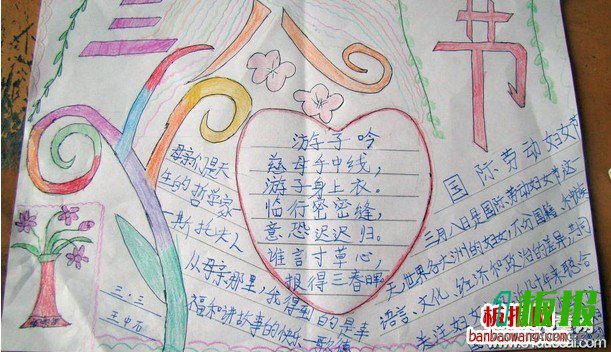 三八节
游子吟
慈母手中线，
游子身上衣。
临行密密缝，
意恐迟迟归。
谁言寸草心，
报得三春晖
母亲们是天
生的哲学家
斯托夫人
从母亲那里，我得到的是幸
福和讲故事的快乐
歌德
三．三
国际劳动妇女节
三月八日是国际劳动妇女节这一
天，世界各大洲的妇女，不分国籍、
语言、文化、经济和政治的差异，共同
关注妇女
板报
banbaowang.com